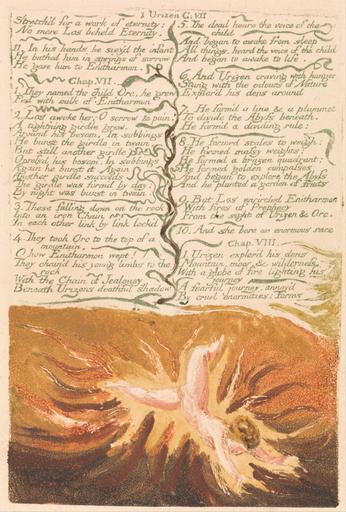 I Urizen C. VII
Stretch'd for a work of eternity;
No more Los beheld Eternity.
11. In his hands he siez'd the infant
He bathed him in springs of sorrow
He gave him to Enitharmon.
Chap. VII.
1. They named the child Orc, he grew
Fed with milk of Enitharmon
2. Los awoke her; O sorrow & pain!
A tight'ning girdle grew,
Around his bosom. In sobbings
He burst the girdle in twain,
But still another girdle
Opressd his bosom. In sobbings
Again he burst it. Again
Another girdle succeeds
The girdle was form'd by day;
By night was burst in twain.
3. These falling down on the rock
Into an iron Chain
In each other link by link lock'd
4. They took Orc to the top of a
mountain.
O how Enitharmon wept!
They chain'd his young limbs to the
rock
With the Chain of Jealousy
Beneath Urizens deathful shadow
5. The dead heard the voice of the
child
And began to awake from sleep
All things. heard the voice of the child
And began to awake to life.
6. And Urizen craving with hunger
Stung with the odours of Nature
Explor'd his dens around
7. He form'd a line & a plummet
To divide the Abyss beneath.
He form'd a dividing rule:
8. He formed scales to weigh;
He formed massy weights;
He formed a brazen quadrant;
He formed golden compasses
And began to explore the Abyss
And he planted a garden of fruits
9. But Los encircled Enitharmon
With fires of Prophecy
From the sight of Urizen & Orc.
10. And she bore an enormous race
Chap. VIII.
1. Urizen explor'd his dens
Mountain, moor, & wilderness,
With a globe of fire lighting his
journey
A fearful journey, annoy'd
By cruel enormities: forms